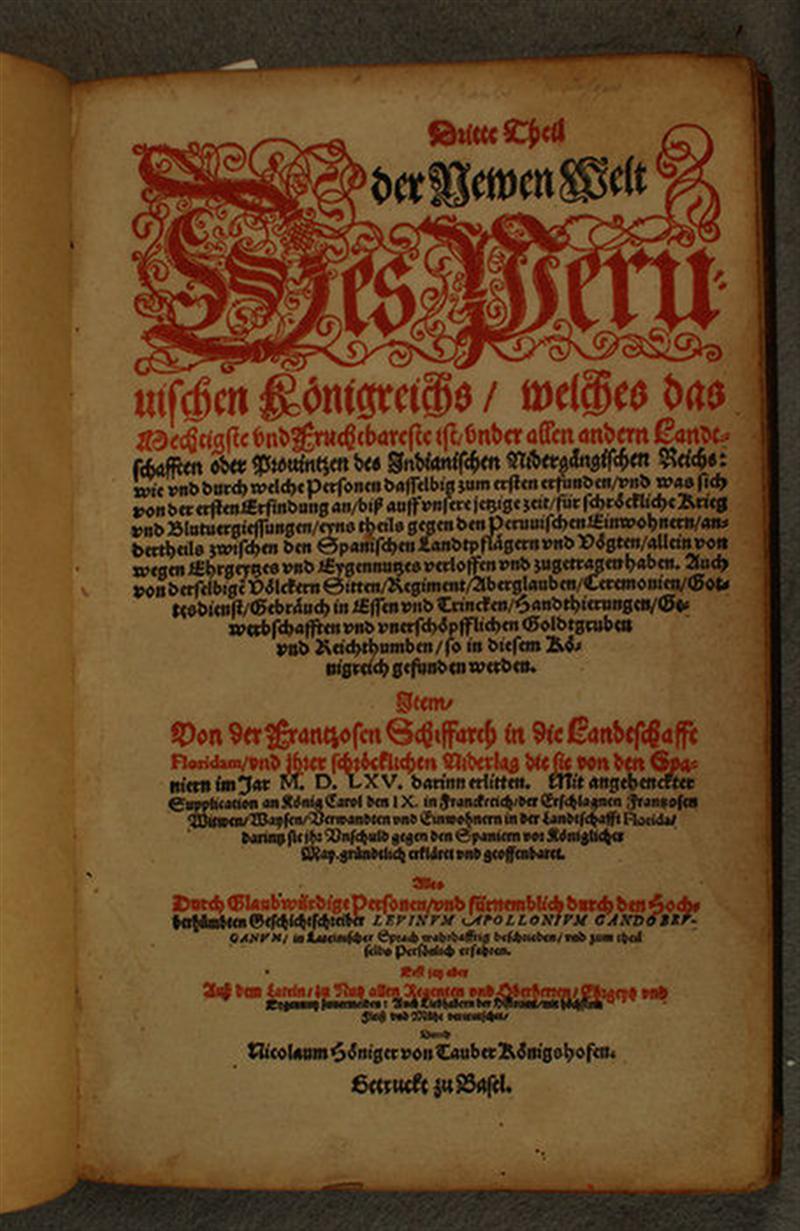 Dritte Theil
der Newen Welt
Des Peru-
uischen Königreichs / welches das
Mechtigste vnd Fruchtbareste ist / vnder allen andern Landt-
schafften oder Prouintzen des Indianischen Nidergängischen Reichs:
wie vnd durch welche Personen dasselbig zum ersten erfunden / vnd was sich
von der ersten Erfindung an / biß auff vnsere jetzige zeit / für schröckliche Krieg
vnd Blutuergiessungen / eyns theils gegen den Peruuischen Einwohnern / an-
dertheils zwischen den Spanischen Landtpflägern vnd Vögten / allein von
wegen Ehrgeytzes vnd Eygennutzes verloffen vnd zugetragen haben. Auch
von derselbigē Völckern Sitten / Regiment / Aberglauben / Ceremonien / Got-
tesdienst / Gebräuch in Essen vnd Trincken / Handthierungen / Ge-
werbschafften vnd vnerschöpfflichen Goldtgruben
vnd Reichthumben / so in diesem Kö-
nigreich gefunden werden.
Item /
Von der Frantzosen Schiffarth in die Landtschafft
Floridam / vnd jhrer schröcklichen Niderlag die sie von den Spa-
niern im Jar M. D. LXV. darinn erlitten. Mit angehenckter
Supplication an König Carol den IX. in Franckreich / der Erschlagnen Frantzosen
Witwen / Waysen / Verwandten vnd Einwohnern in der Landtschafft Florida /
darinn sie jhr Vnschuld gegen den Spaniern vor Königlicher
May. gründtlich erkläret vnd geoffenbaret.
Alles
Durch Glaubwürdige Personen / vnd fürnemblich durch den Hoch-
berhümbten Geschichtschreiber LEVINVM APOLLONIVM GANDOBRV-
GANVM / in Lateinischer Sprach warhafftig beschrieben / vnd zum theil
selbs Persönlich erfahren.
Jetzt aber
Auß dem Latein / zu Nutz allen Regenten vnd Oberherren / Ehrgeytz vnd
Eygennutz zuuermeiden: Auch Liebhabern der Historien / mit höchstem
Fleiß vnd Mühe verteutschet /
Durch
Nicolaum Höniger von Tauber Königshofen.
Getruckt zu Basel.